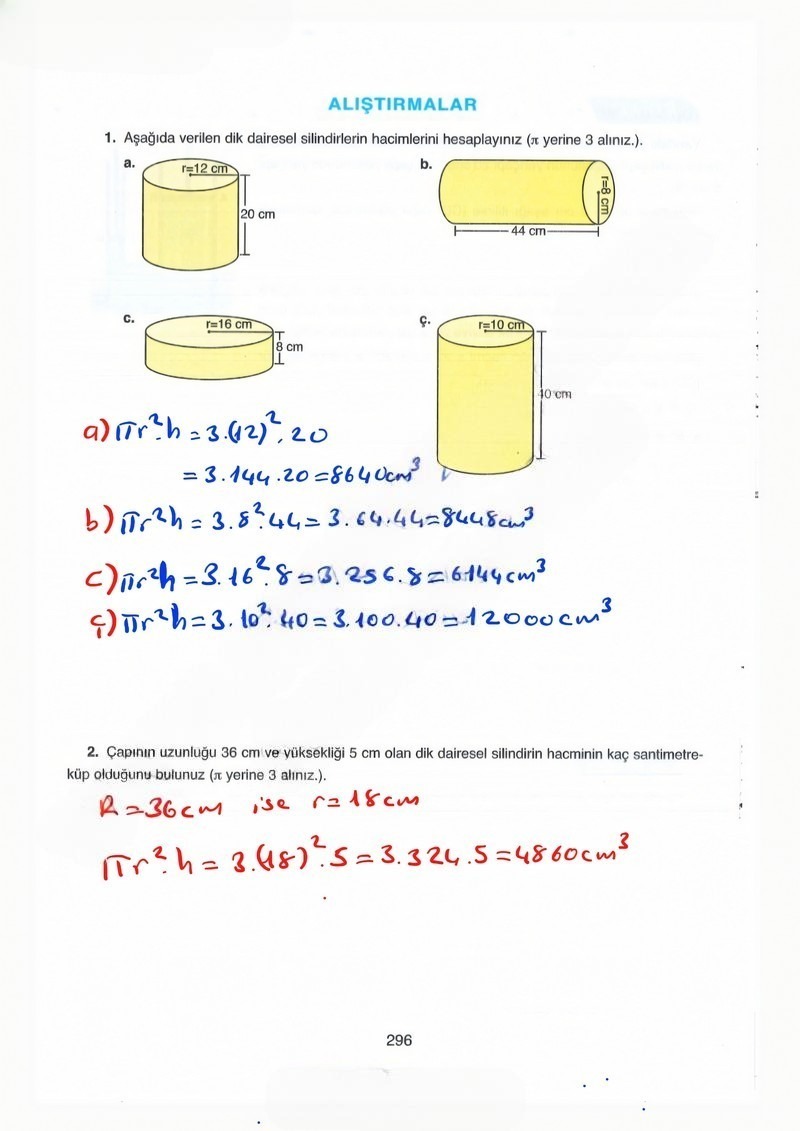 ALIŞTIRMALAR
1. Aşağıda verilen dik dairesel silindirlerin hacimlerini hesaplayınız (π yerine 3 alınız.).
a.
r=12 cm
20 cm
b.
r=8 cm
44 cm
c.
r=16 cm
8 cm
ç.
r=10 cm
40 cm
a) πr².h = 3.(12)².20
= 3.144.20 = 8640cm³
b) πr²h = 3.8².44 = 3.64.44 = 8448cm³
c) πr²h = 3.16².8 = 3.256.8 = 6144cm³
ç) πr²h = 3.10².40 = 3.100.40 = 12000cm³
2. Çapının uzunluğu 36 cm ve yüksekliği 5 cm olan dik dairesel silindirin hacminin kaç santimetre-
küp olduğunu bulunuz (π yerine 3 alınız.).
R = 36cm ise r = 18cm
πr².h = 3.(18)².5 = 3.324.5 = 4860cm³
296